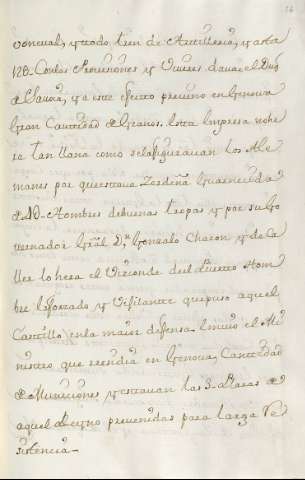 voncual, y todo tren de Artilleria, y asta
120. Con las Provisiones y Viveres dava el Duq
de Savoia, y a este efecto previno en Genova
Gran Cantidad de Granos. Esta Impresa no he
ra tan llana como se la figuravan los Ale
manes por que estava Zerdeña Guarnecida
de 40-Hombres de buenas tropas y por su Go
vernador Gräl Dⁿ Gonzalo Chacon y de Ca
ller lo hera el Visconde del Puerto Hom
bre esforzado y Vigilante que puso aquel
Castillo en la maior defensa. Imvio el Mi
nistro que residia en Genova, Cantidad
de Municiones y estavan las 3. Plazas de
aquel Reyno prevenidas para larga Re
sistencia-